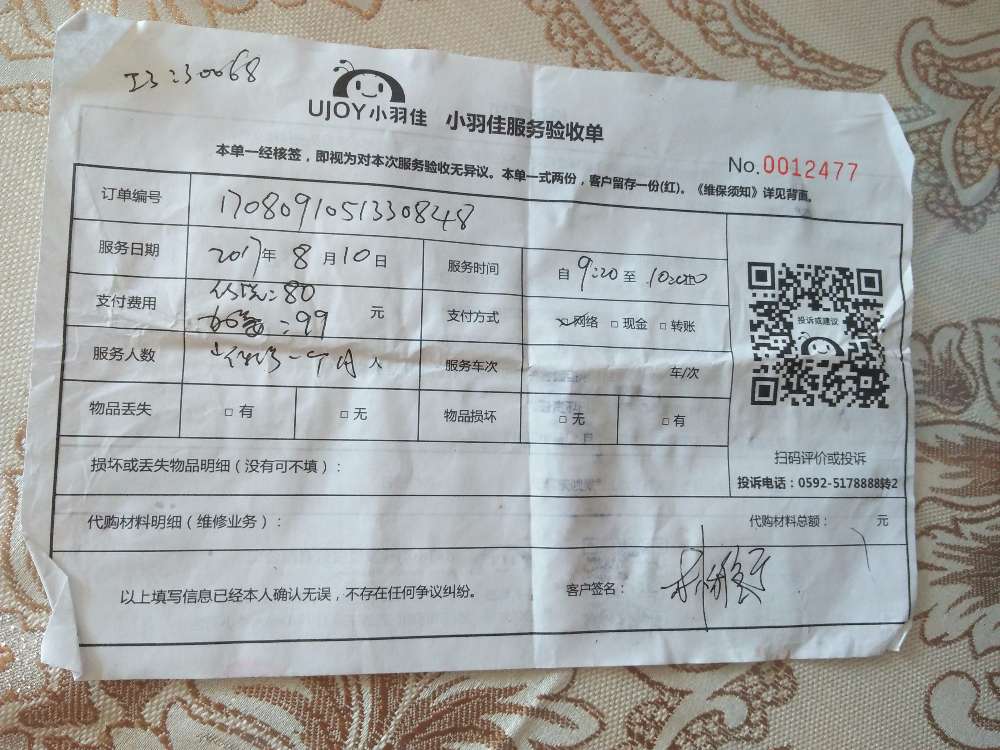 UJOY小羽佳 小羽佳服务验收单
No.0012477
本单一经核签，即视为对本次服务验收无异议。本单一式两份，客户留存一份(红)。《维保须知》详见背面。
订单编号 1708091051330848
服务日期 2017年8月10日 服务时间 自9:20至10:00
支付费用 :80 元 支付方式 网络 □现金 □转账
:99
服务人数 一个月 人 服务车次 车/次
物品丢失 □有 □无 物品损坏 □无 □有
投诉或建议
扫码评价或投诉
投诉电话：0592-5178888转2
损坏或丢失物品明细（没有可不填）：
代购材料明细（维修业务）： 代购材料总额： 元
以上填写信息已经本人确认无误，不存在任何争议纠纷。 客户签名：